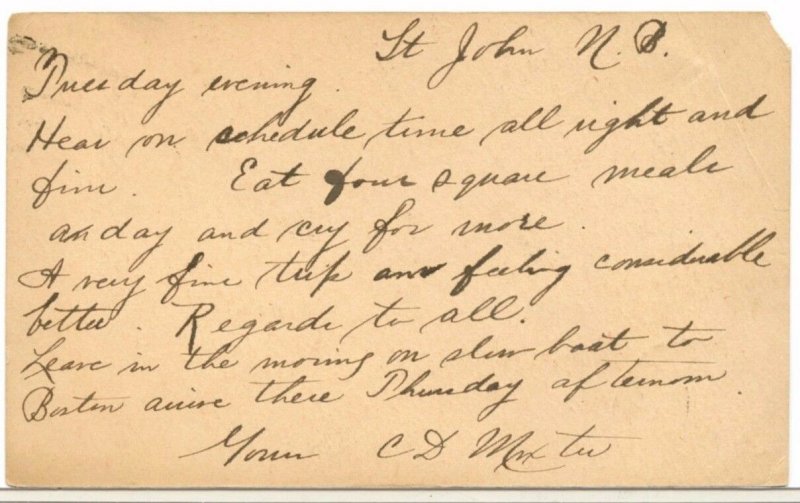 St John N.B.
Tuesday evening.
Hear on schedule time all right and
fine. Eat four square meals
a day and cry for more.
A very fine trip am feeling considerable
better. Regards to all.
Leave in the morning on slow boat to
Boston arrive there Thursday afternoon.
Yours C D